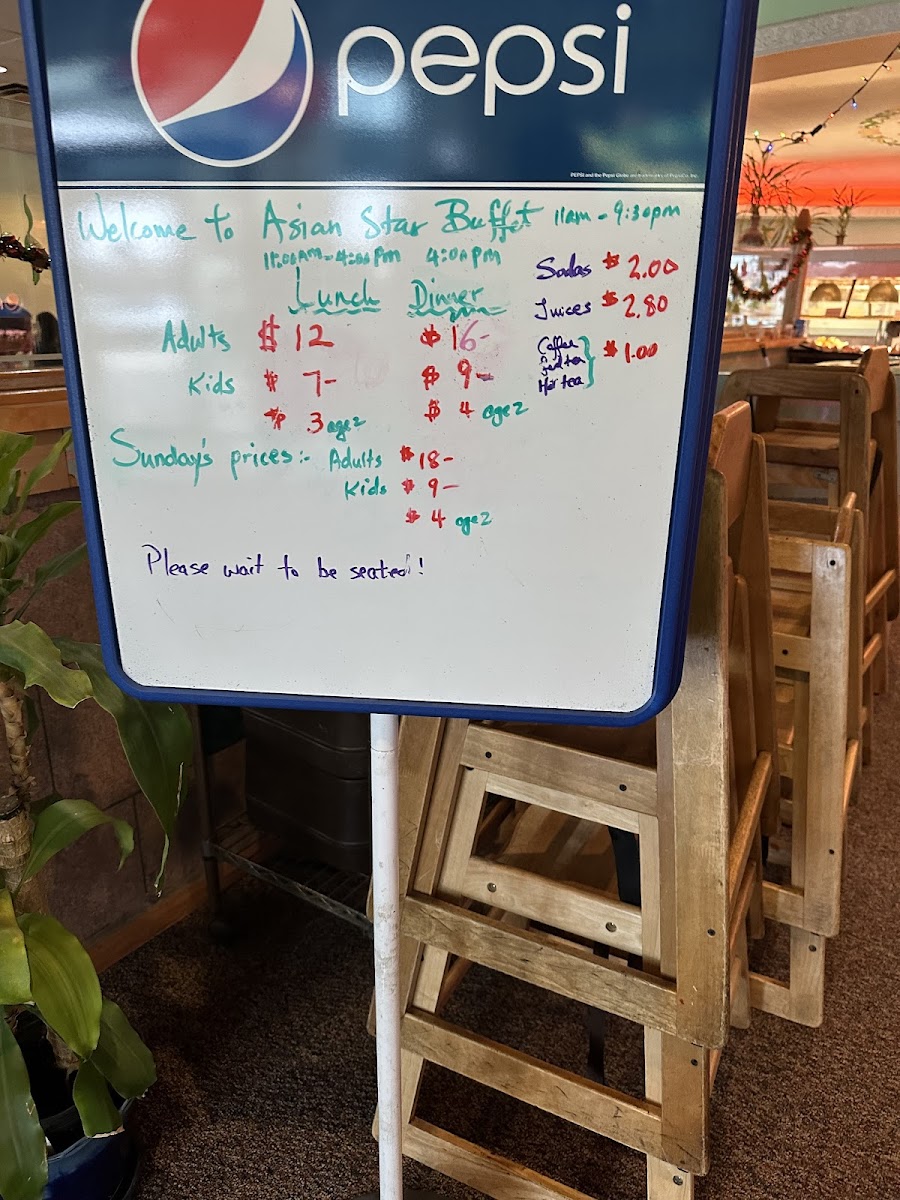 pepsi
PEPSI and the Pepsi Globe are trademarks of PepsiCo, Inc.
Welcome to Asian Star Buffet 11am - 9:30pm
11:00AM - 4:00pm 4:00pm
Lunch Dinner
Adults $ 12 $ 16-
Kids $ 7- $ 9-
$ 3 age 2 $ 4 age 2
Sodas $ 2.00
Juices $ 2.80
Coffee
Iced tea $ 1.00
Hot tea
Sunday's prices:- Adults $ 18-
Kids $ 9-
$ 4 age 2
Please wait to be seated!